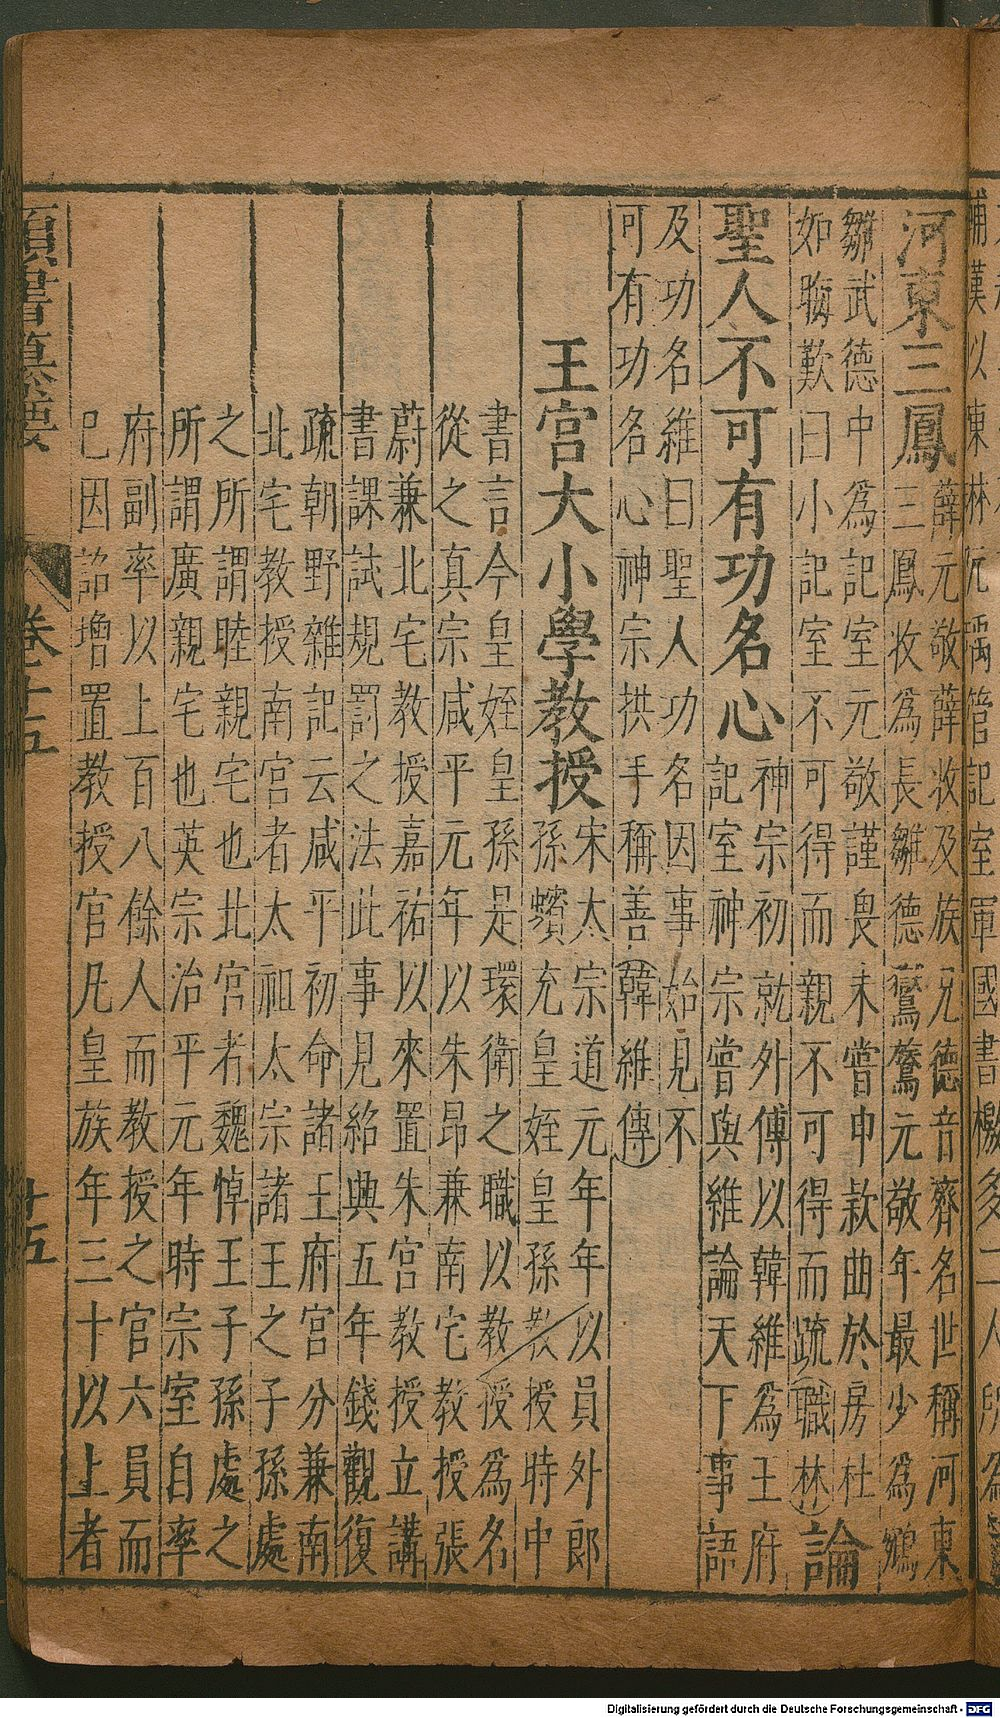 輔漢以陳琳阮瑀管記室軍國書檄多二人所為
河東三鳳
薛元敬薛收及族兄德音齊名世稱河東
三鳳收為長雛德音鸑鷟元敬年最少為鵷
雛武德中為記室元敬謹畏未嘗申款曲於房杜
如晦歎曰小記室不可得而親不可得而疏職林
論
聖人不可有功名心
神宗初就外傅以韓維為王府
記室神宗嘗與維論天下事語
及功名維曰聖人功名因事始見不
可有功名心神宗拱手稱善韓維傳
王宮大小學教授
宋太宗道元年年以員外郎
孫蠙充皇姪皇孫教授時中
書言今皇姪皇孫是環衛之職以教授為名
從之真宗咸平元年以朱昂兼南宅教授張
蔚兼北宅教授嘉祐以來置朱宮教授立講
書課試規罰之法此事見紹興五年錢觀復
疏朝野雜記云咸平初命諸王府官分兼南
北宅教授南宮者太祖太宗諸王之子孫處
之所謂睦親宅也北宮者魏悼王子孫處之
所謂廣親宅也英宗治平元年時宗室自率
府副率以上百八餘人而教授之官六員而
已因詔增置教授官凡皇族年三十以上者
類書纂要
卷十五
十五
Digitalisierung gefördert durch die Deutsche Forschungsgemeinschaft - DFG